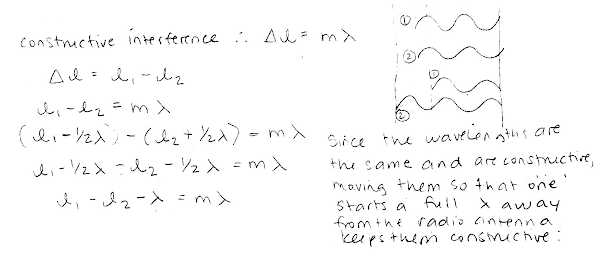 constructive interference ∴ Δl = mλ
Δl = l₁ - l₂
l₁ - l₂ = mλ
(l₁ - 1/2λ) - (l₂ + 1/2λ) = mλ
l₁ - 1/2λ - l₂ - 1/2λ = mλ
l₁ - l₂ - λ = mλ
①
②
①
②
Since the wavelengths are
the same and are constructive,
moving them so that one
starts a full λ away
from the radio antenna
keeps them constructive.